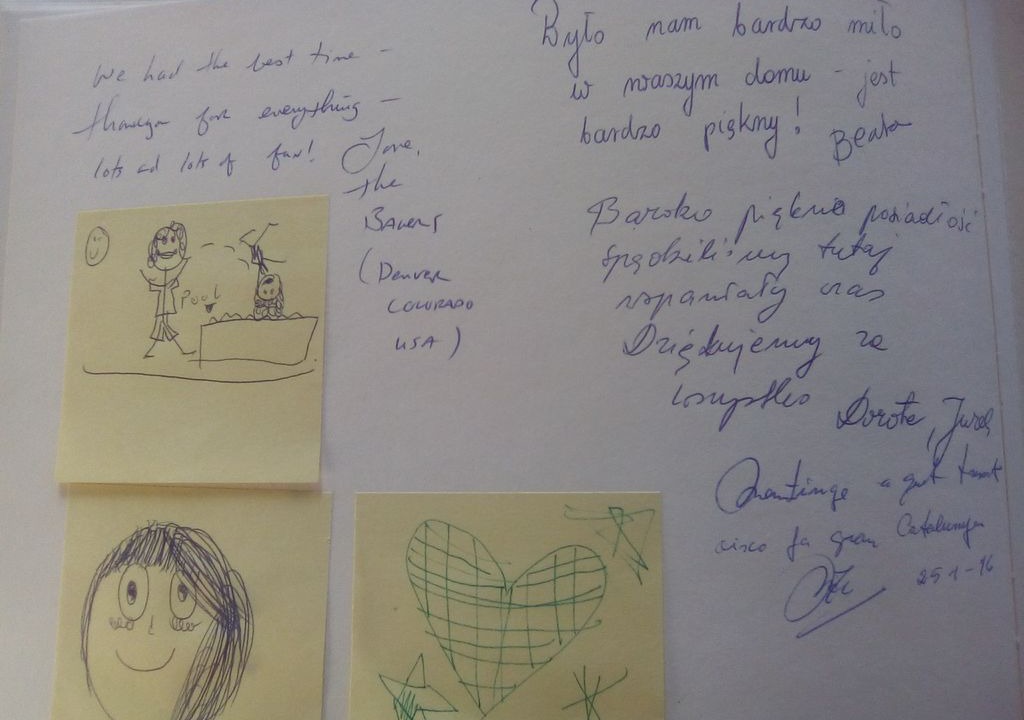 We had the best time -
thankyou for everything -
lots ad lots of fun!
Love,
the
(Denver
COLORADO
USA)
Pool
Było nam bardzo miło
w waszym domu - jest
bardzo piękny!
Beata
Bardzo piękna posiadłość
spędziliśmy tutaj
wspaniały czas
Dziękujemy za
wszystko
Dorota, Jurek
a gust
fa gran Catalunya
25 1-16